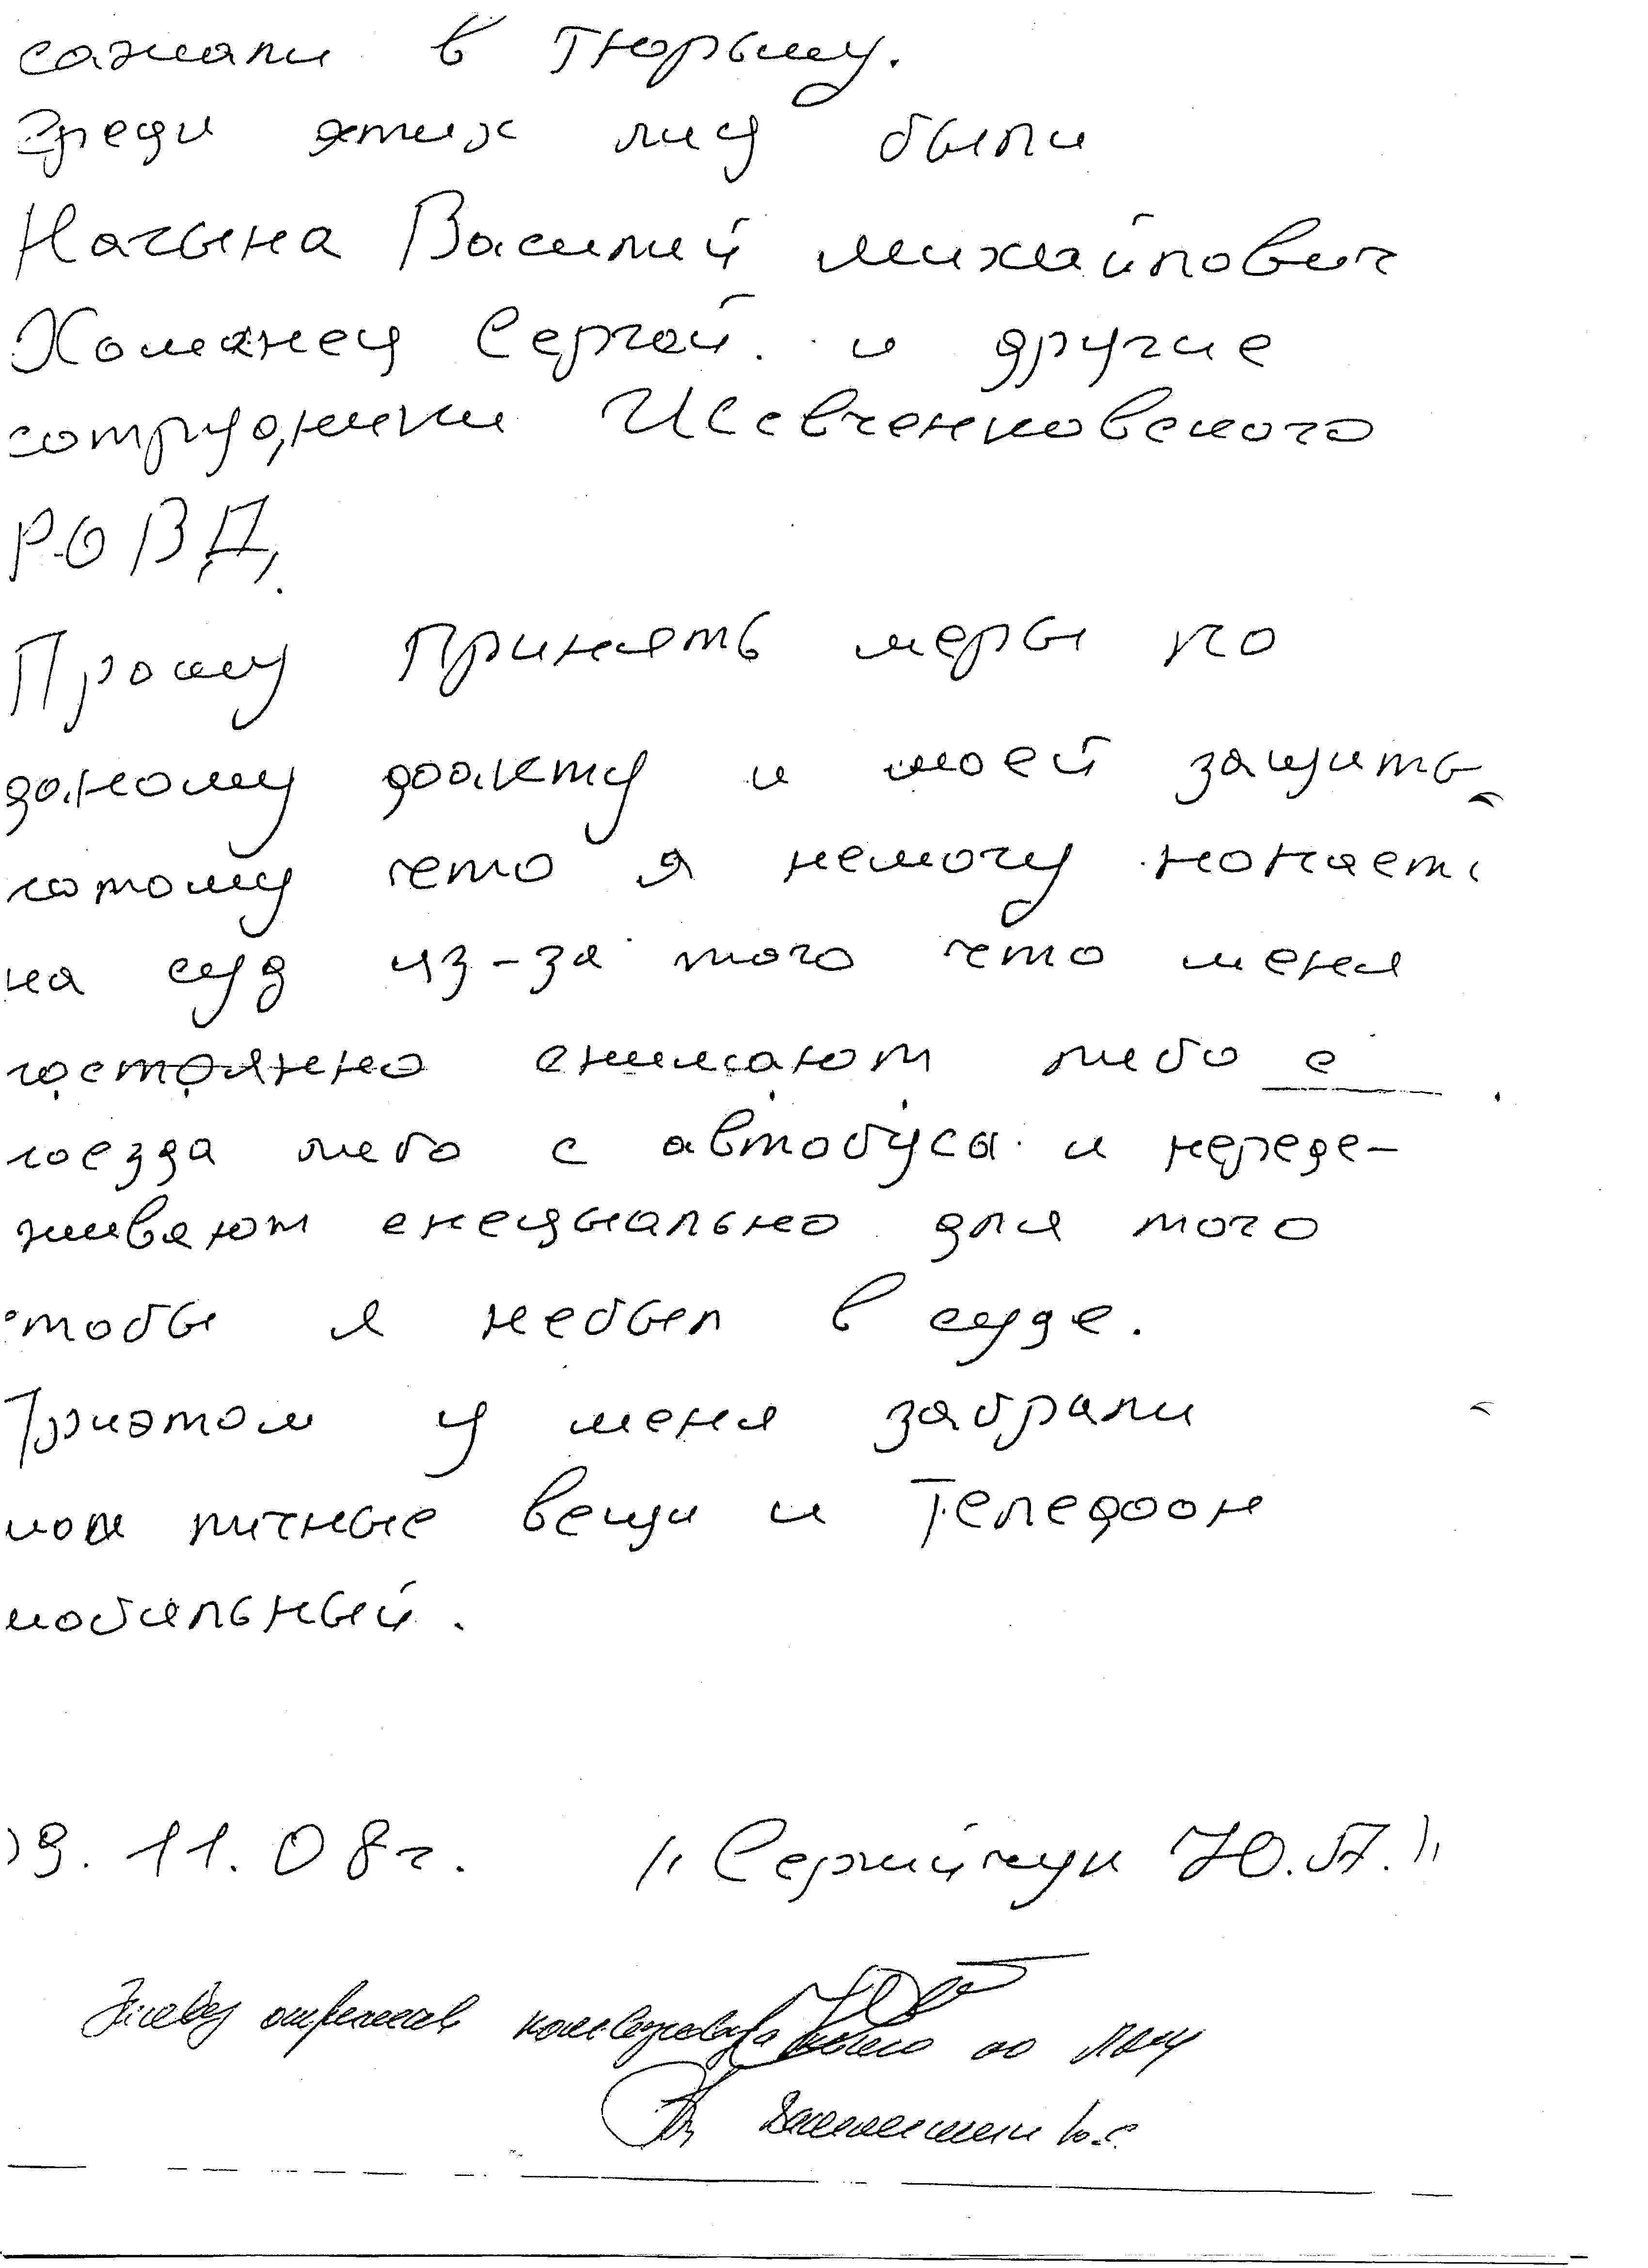 сажали в тюрьму.
Среди этих лиц были
Начына Василий михайлович
Хоманец Сергей. и другие
сотрудники Шевченковского
РОВД.
Прошу принять меры по
даному факту и моей защить
потому что я немогу попасть
на суд из-за того что меня
постоянно снимают либо с
поезда либо с автобуса и нереде-
живают специально для того
чтобы я небыл в суде.
Приэтом у меня забрали
мои личные вещи и Телефон
мобильный.
9. 11. 08г. "Сергийчук Ю.П."